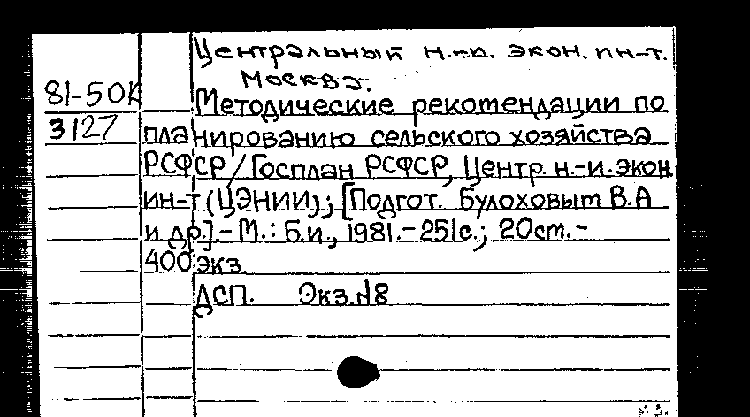 Центральный н.-и. экон. ин-т.
Москва.
81-50К
3127
Методические рекомендации по
планированию сельского хозяйства
РСФСР/Госплан РСФСР, Центр. н.-и. экон
ин-т (ЦЭНИИ); [Подгот. Булоховыт В.А
и др.].- М.: Б.и., 1981.-251с.; 20ст.-
400 экз.
ДСП. Экз.№8